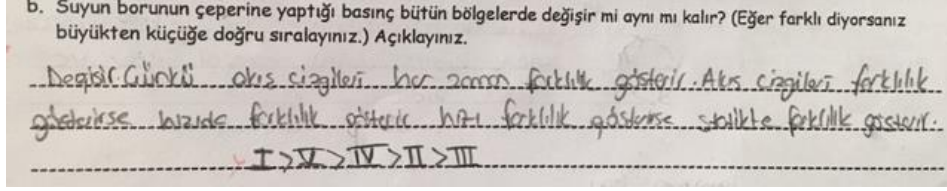 b. Suyun borunun çeperine yaptığı basınç bütün bölgelerde değişir mi aynı mı kalır? (Eğer farklı diyorsanız
büyükten küçüğe doğru sıralayınız.) Açıklayınız.
Değişir. Çünkü akış çizgileri her zaman farklılık gösterir. Akış çizgileri farklılık
gösterirse hızıda farklılık gösterir hızı farklılık gösterirse farklılık gösterir.
I > V > IV > II > III